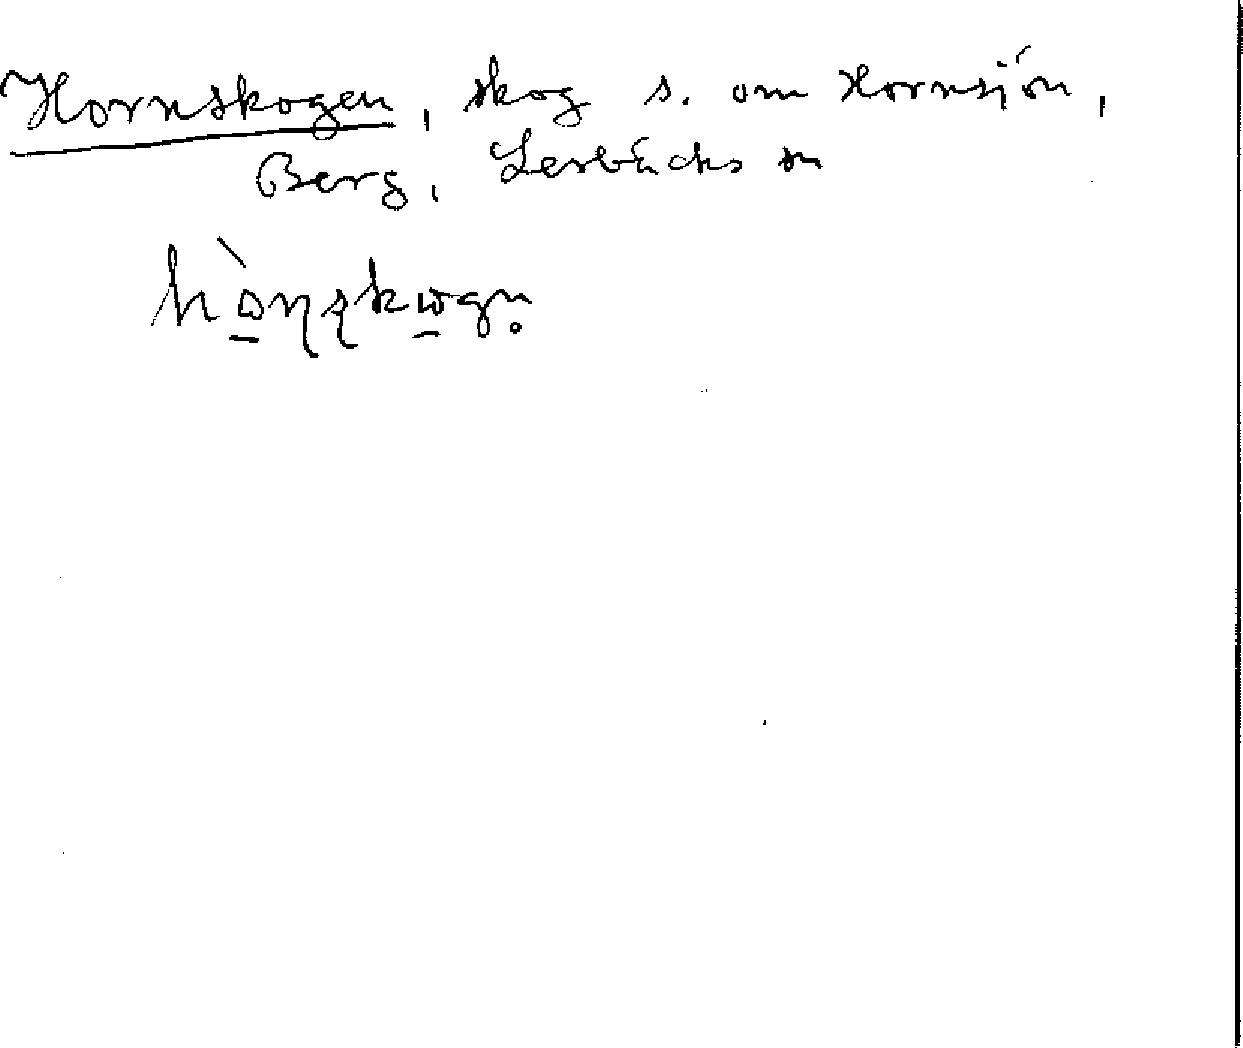 Hornskogen, skog s. om Hornsjön,
Berg, Lerbäcks sn
hònskogn